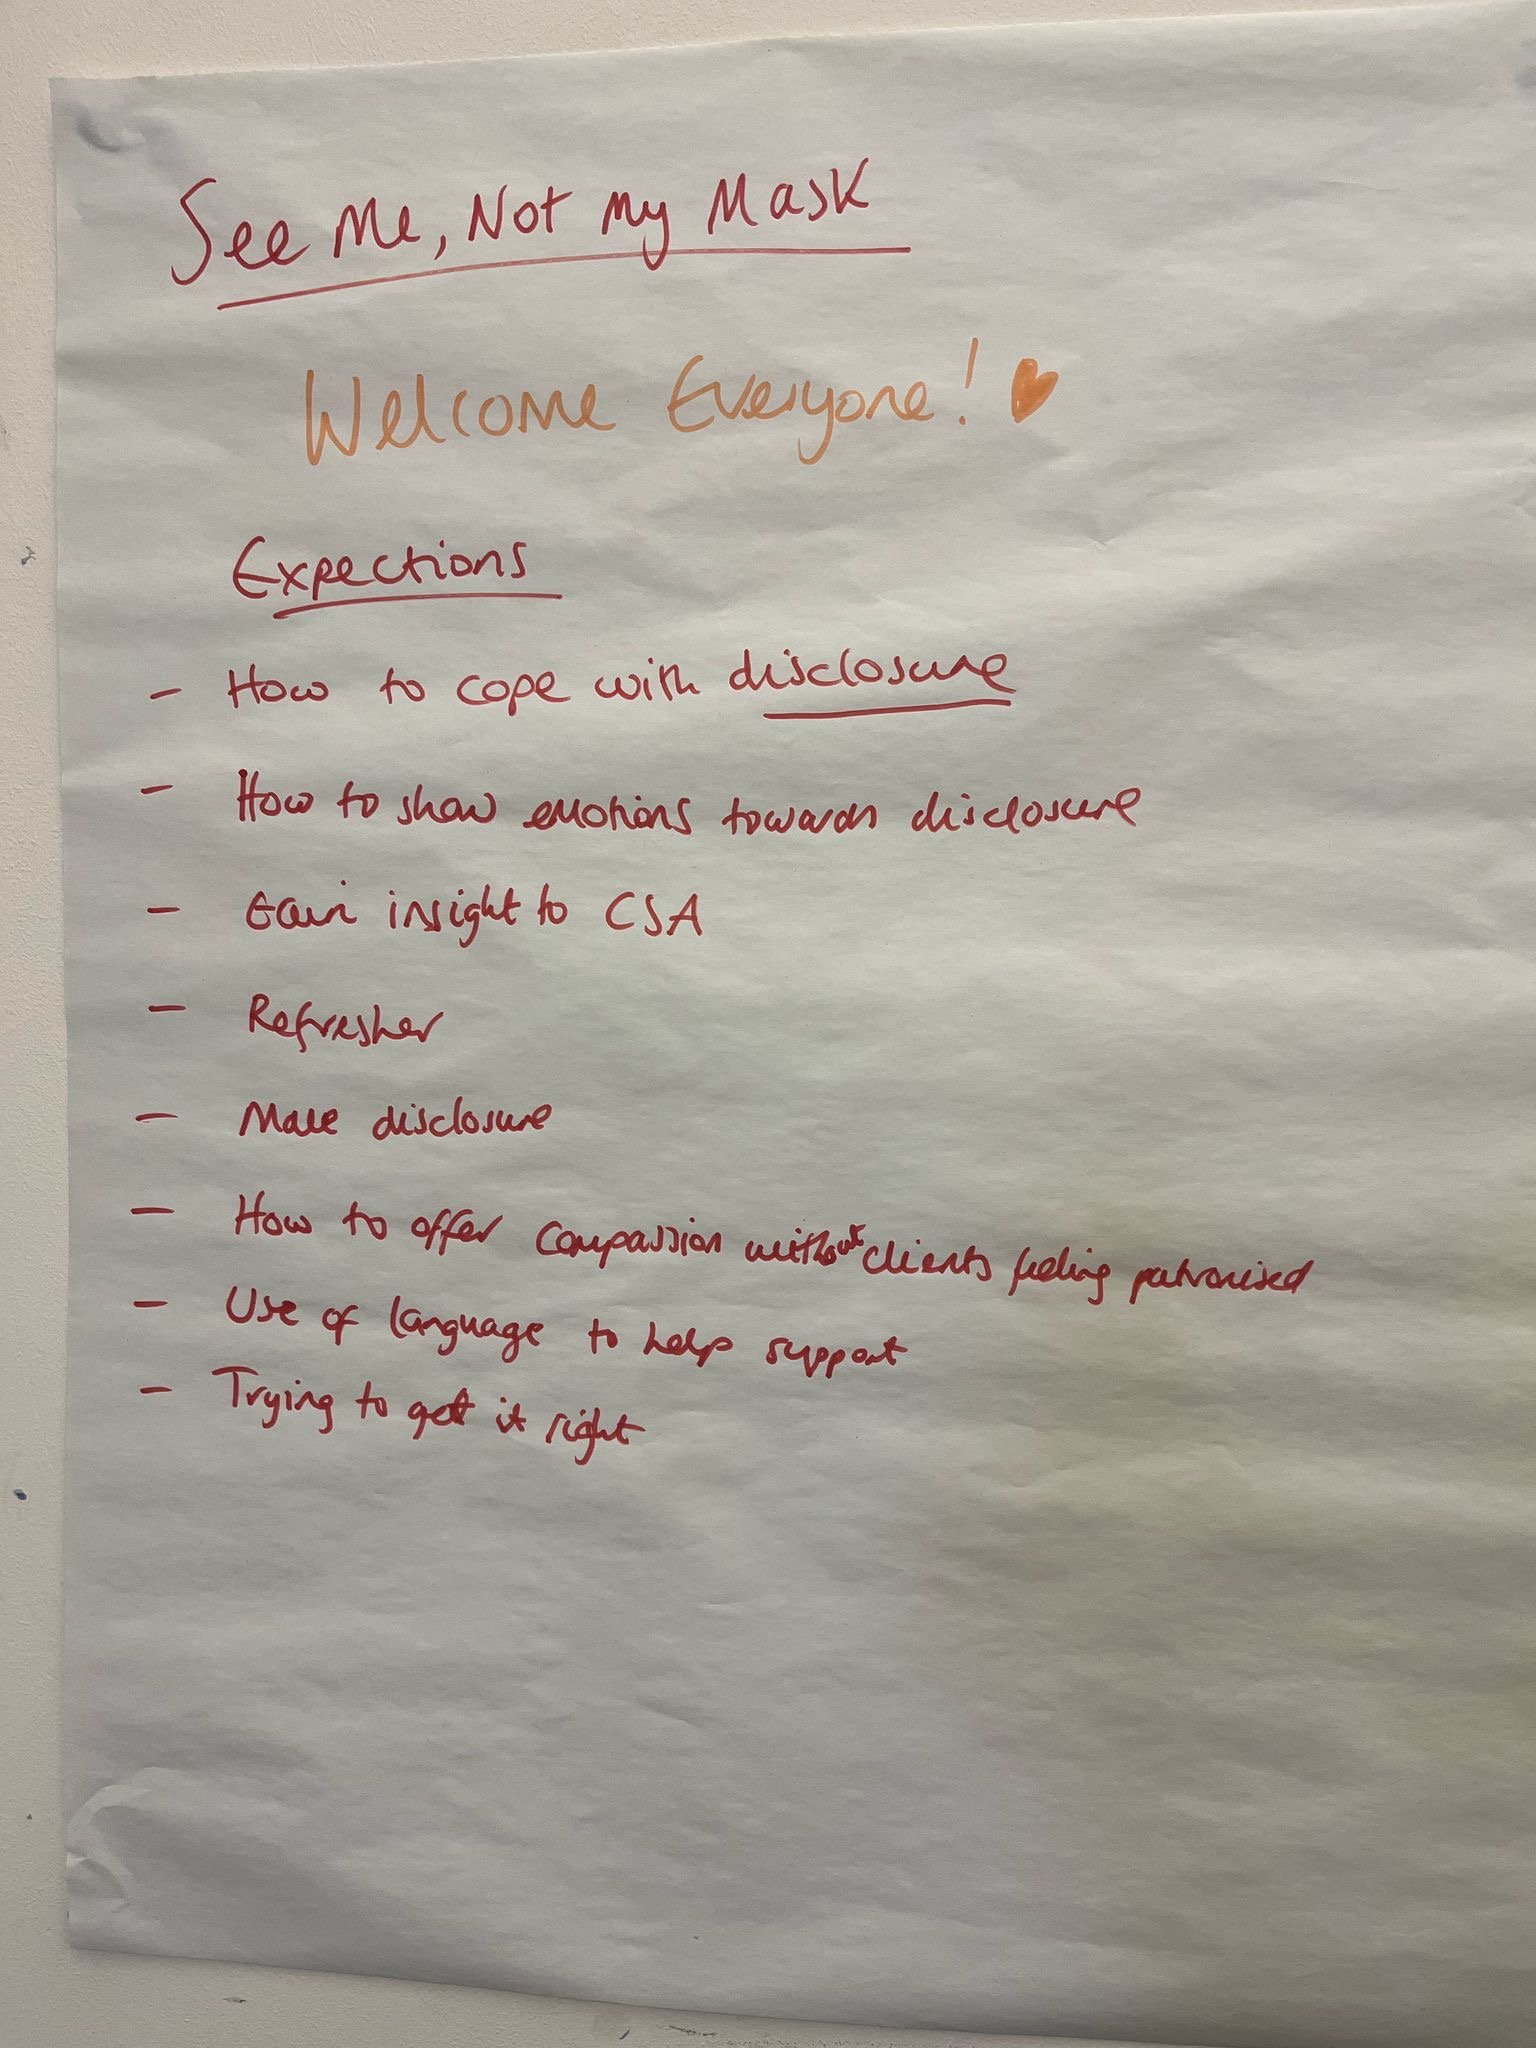 See Me, Not My Mask
Welcome Everyone!
Expections
- How to cope with disclosure
- How to show emotions towards disclosure
- Gain insight to CSA
- Refresher
- Male disclosure
- How to offer compassion without clients feeling patronised
- Use of language to help support
- Trying to get it right